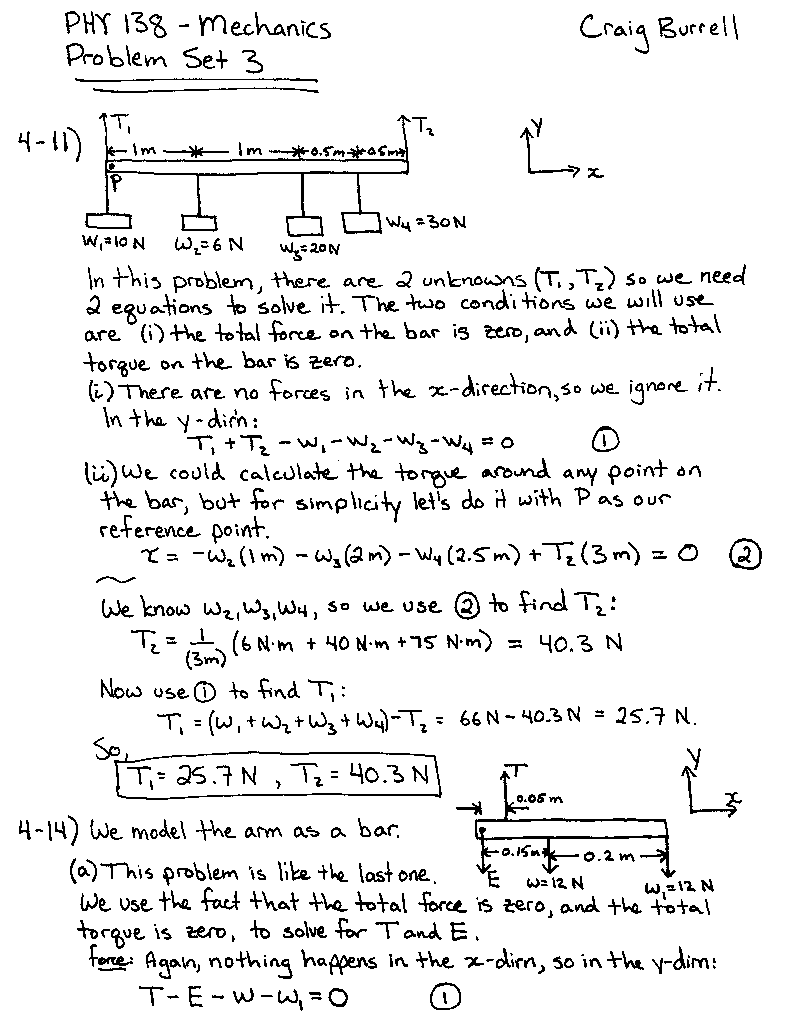 PHY 138 - Mechanics
Craig Burrell
Problem Set 3
4-11)
T₁
T₂
1m
1m
0.5m
0.5m
P
y
x
W₁=10 N
W₂=6 N
W₃=20N
W₄=30N
In this problem, there are 2 unknowns (T₁, T₂) so we need
2 equations to solve it. The two conditions we will use
are (i) the total force on the bar is zero, and (ii) the total
torque on the bar is zero.
(i) There are no forces in the x-direction, so we ignore it.
In the y-dir'n:
T₁ + T₂ - W₁ - W₂ - W₃ - W₄ = 0 ①
(ii) We could calculate the torque around any point on
the bar, but for simplicity let's do it with P as our
reference point.
τ = -W₂(1m) - W₃(2m) - W₄(2.5m) + T₂(3m) = 0 ②
We know W₂, W₃, W₄, so we use ② to find T₂:
T₂ = 1/(3m) (6 N·m + 40 N·m + 75 N·m) = 40.3 N
Now use ① to find T₁:
T₁ = (W₁ + W₂ + W₃ + W₄) - T₂ = 66N - 40.3N = 25.7 N.
So,
T₁ = 25.7 N , T₂ = 40.3 N
4-14) We model the arm as a bar.
T
0.05 m
y
x
0.15m
0.2 m
E
W=12 N
W₁=12 N
(a) This problem is like the last one.
We use the fact that the total force is zero, and the total
torque is zero, to solve for T and E.
force: Again, nothing happens in the x-dirn, so in the y-dirn:
T - E - W - W₁ = 0 ①